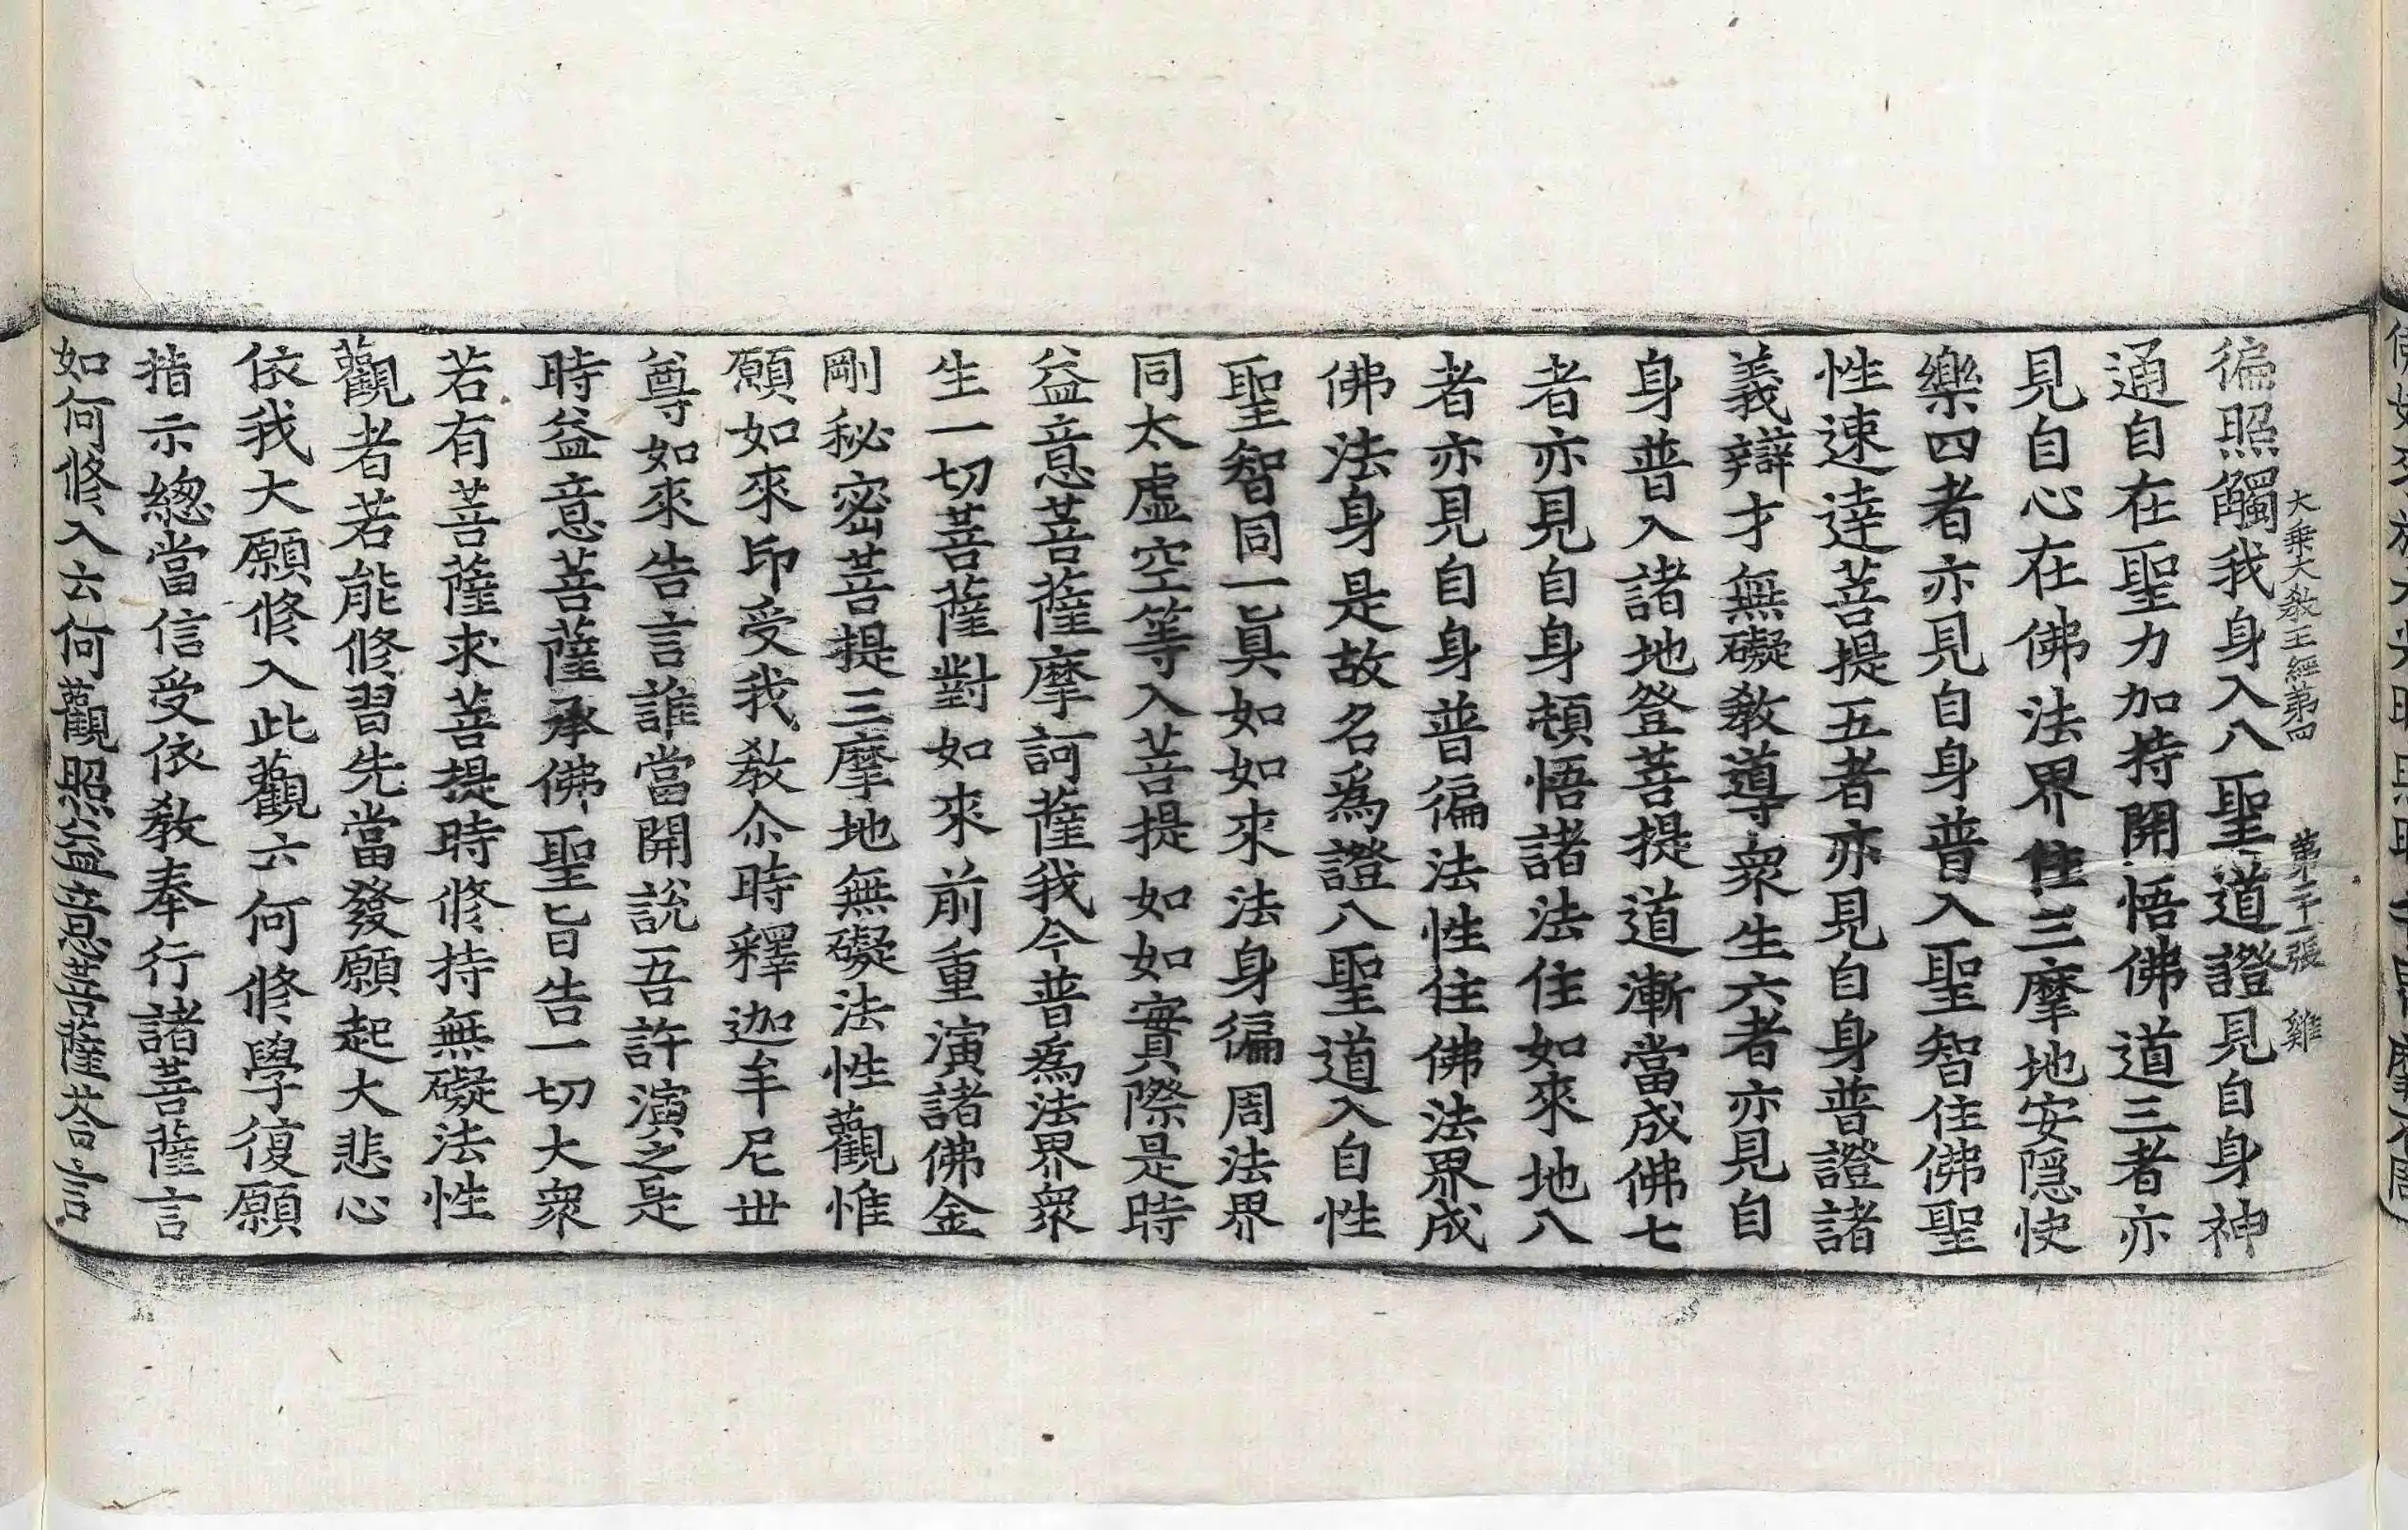 大乘大敎王經第四 第二十一張 雞
徧照觸我身入八聖道證見自身神
通自在聖力加持開悟佛道三者亦
見自心在佛法界住三摩地安隱快
樂四者亦見自身普入聖智住佛聖
性速達菩提五者亦見自身普證諸
義辯才無礙敎導衆生六者亦見自
身普入諸地登菩提道漸當成佛七
者亦見自身頓悟諸法住如來地八
者亦見自身普徧法性住佛法界成
佛法身是故名爲證八聖道入自性
聖智同一眞如如來法身徧周法界
同太虛空等入菩提如如實際是時
益意菩薩摩訶薩我今普爲法界衆
生一切菩薩對如來前重演諸佛金
剛秘密菩提三摩地無礙法性觀惟
願如來印受我敎尒時釋迦牟尼世
尊如來告言誰當開說吾許演之是
時益意菩薩承佛聖旨告一切大衆
若有菩薩求菩提時修持無礙法性
觀者若能修習先當發願起大悲心
依我大願修入此觀云何修學復願
指示總當信受依敎奉行諸菩薩言
如何修入云何觀照益意菩薩荅言